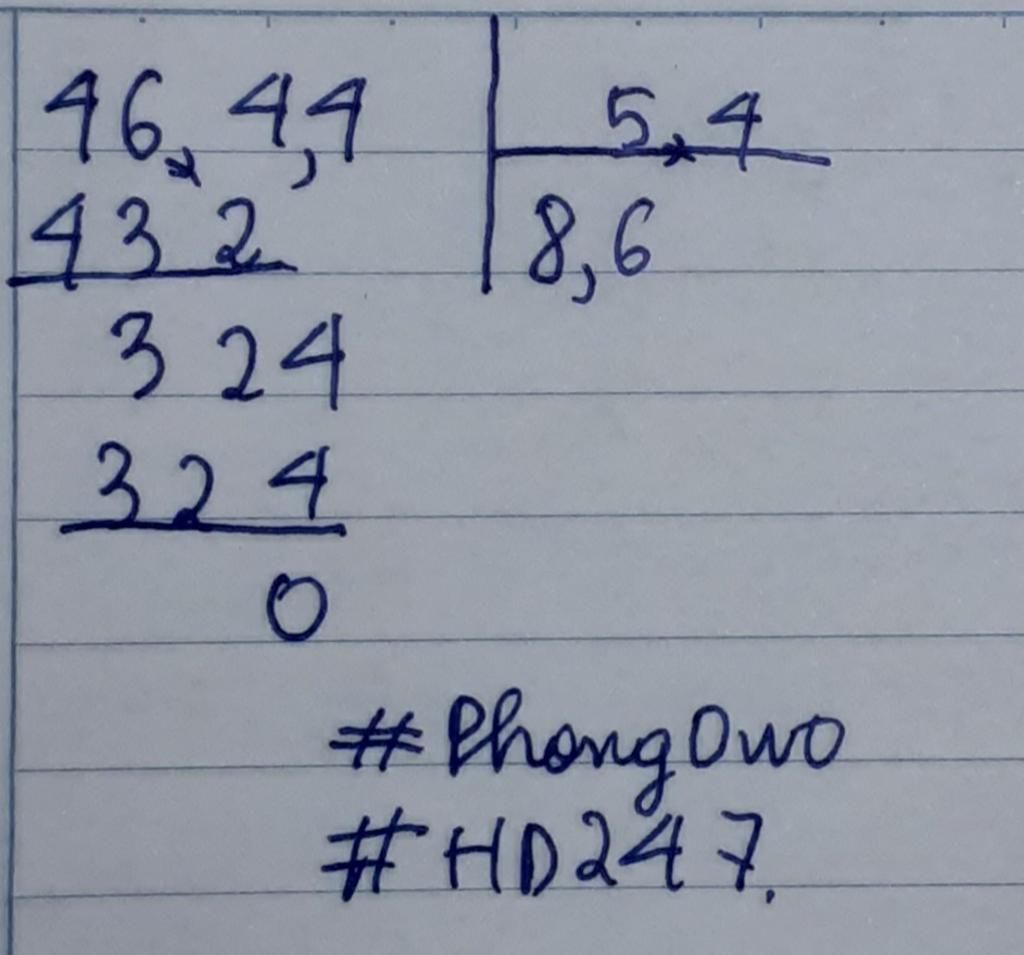 46,4,4 5,4
432 8,6
324
324
0
#PhongOwO
#HD247.